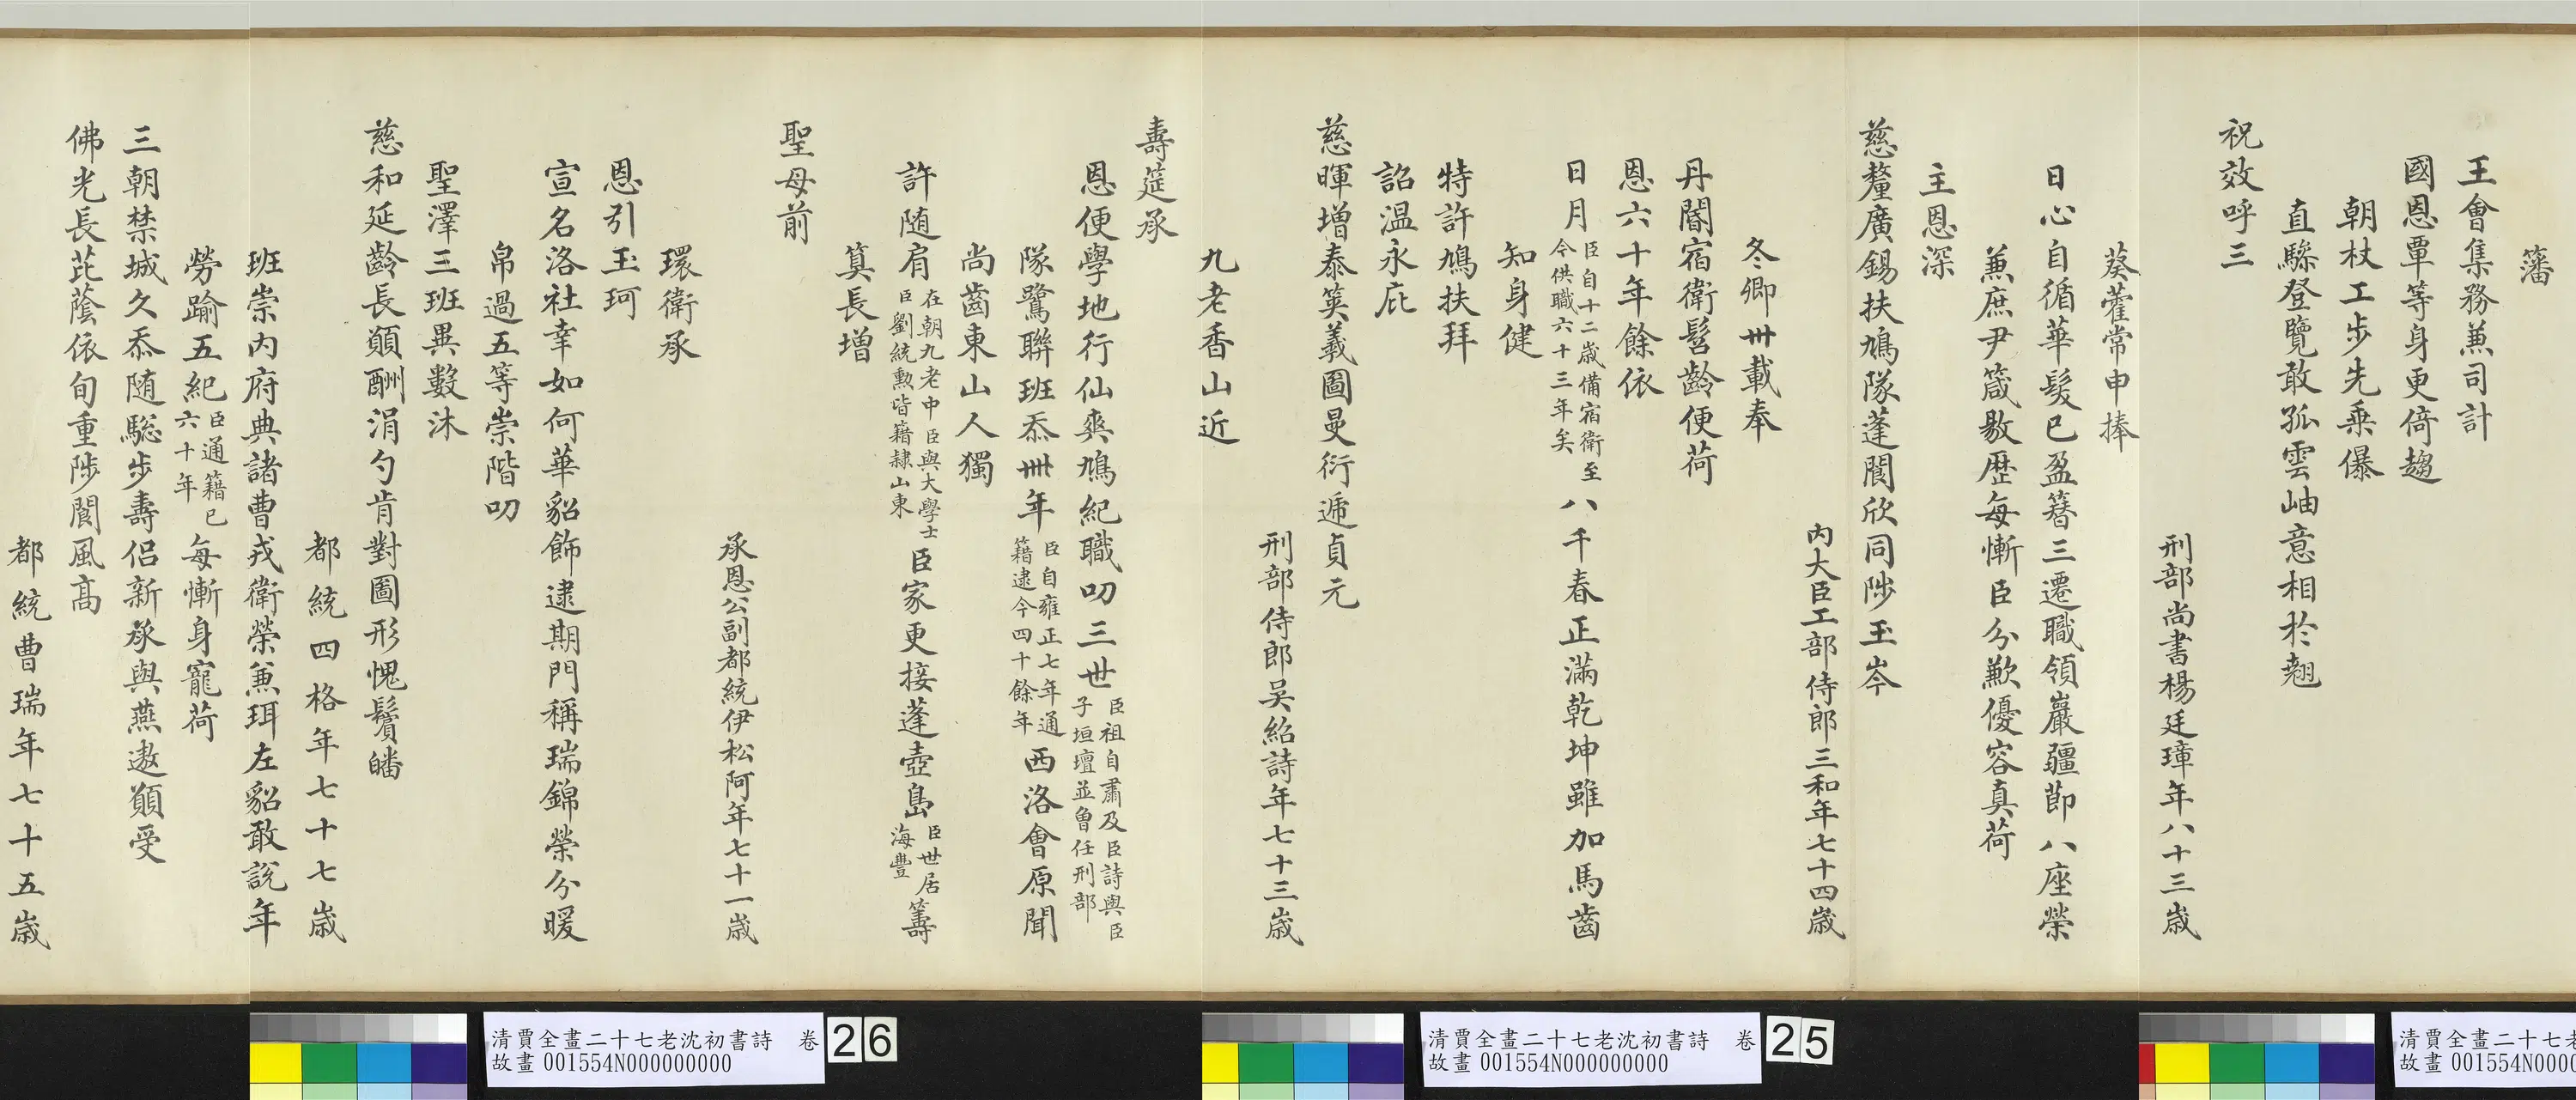 籓
王會集務兼司計
國恩覃等身更倚趨
朝杖工步先乘儤
直驂登覽敢孤雲岫意相於翹
祝效呼三
刑部尚書楊廷璋年八十三歲
葵藿常申捧
日心自循華髮已盈簪三遷職領嚴疆節八座榮
兼庶尹箴敭歷每慚臣分歉優容真荷
主恩深
慈釐廣錫扶鳩隊蓬閬欣同陟玉岑
內大臣工部侍郎三和年七十四歲
冬卿卅載奉
丹闇宿衛髫齡便荷
恩六十年餘依
日月臣自十二歲備宿衛至今供職六十三年矣八千春正滿乾坤雖加馬齒
知身健
特許鳩扶拜
詔温永庇
慈暉增泰筴羲圖曼衍遞貞元
刑部侍郎吴紹詩年七十三歲
九老香山近
壽筵承
恩便學地行仙爽鳩紀職叨三世臣祖自肅及臣詩與臣子垣壇並曾任刑部
隊鷺聯班忝卌年臣自雍正七年通籍逮今四十餘年西洛會原聞
尚齒東山人獨
許随肩在朝九老中臣與大學士臣劉統勲皆籍隸山東臣家更接蓬壺島臣世居海豐籌
算長增
聖母前
承恩公副都統伊松阿年七十一歲
環衛承
恩引玉珂
宣名洛社幸如何華貂飾逮期門稱瑞錦榮分暖
帛過五等崇階叨
聖澤三班異數沐
慈和延齡長願酬涓勺肯對圖形愧鬢皤
都統四格年七十七歲
班崇内府典諸曹戎衛榮兼珥左貂敢說年
勞踰五紀臣通籍已六十年每慚身寵荷
三朝禁城久忝随驄步壽侣新承與燕遨願受
佛光長芘蔭依旬重陟閬風高
都統曹瑞年七十五歲
清賈全畫二十七老沈初書詩 卷
故畫 001554N000000000
26
清賈全畫二十七老沈初書詩 卷
故畫 001554N000000000
25
清賈全畫二十七老
故畫 001554N000